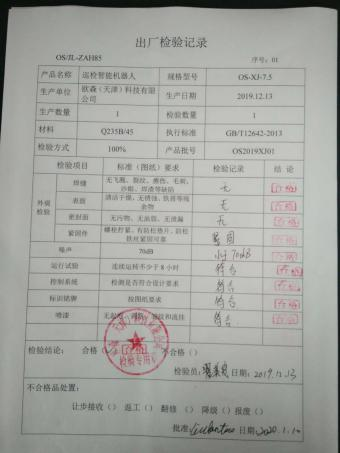 出厂检验记录
OS/JL-ZAH85 序号：01
产品名称 巡检智能机器人 规格型号 OS-XJ-7.5
生产单位 欧森（天津）科技有限公司 生产日期 2019.12.13
生产数量 1 检验数量 1
材料 Q235B/45 执行标准 GB/T12642-2013
检验方式 100% 产品批号 OS2019XJ01
检验项目 标准（图纸）要求 检验记录 结论
外观检验
焊缝 无飞溅、裂纹、擦伤、毛刺、沙眼、焊渣等缺陷 无 合格
表面 清洁干燥、无锈蚀、铁屑等残余物 无 合格
密封面 无污物、无油脂、无泄漏 无 合格
紧固件 螺栓拧紧、有防松垫片、防松铁丝紧固可靠 紧固 合格
噪声 70dB 小于70dB 合格
运行试验 连续运转不少于8小时 符合 合格
控制系统 检测是否符合设计要求 符合 合格
标识铭牌 按图纸要求 符合 合格
喷漆 裂纹和流挂 符合 合格
检验专用章
检验结论： 合格（合格） 不合格（）
检验员： 日期：2019.12.13
不合格品处置：
让步接收（） 返工（） 翻修（） 降级（） 报废（）
批准： 日期：2020.1.10